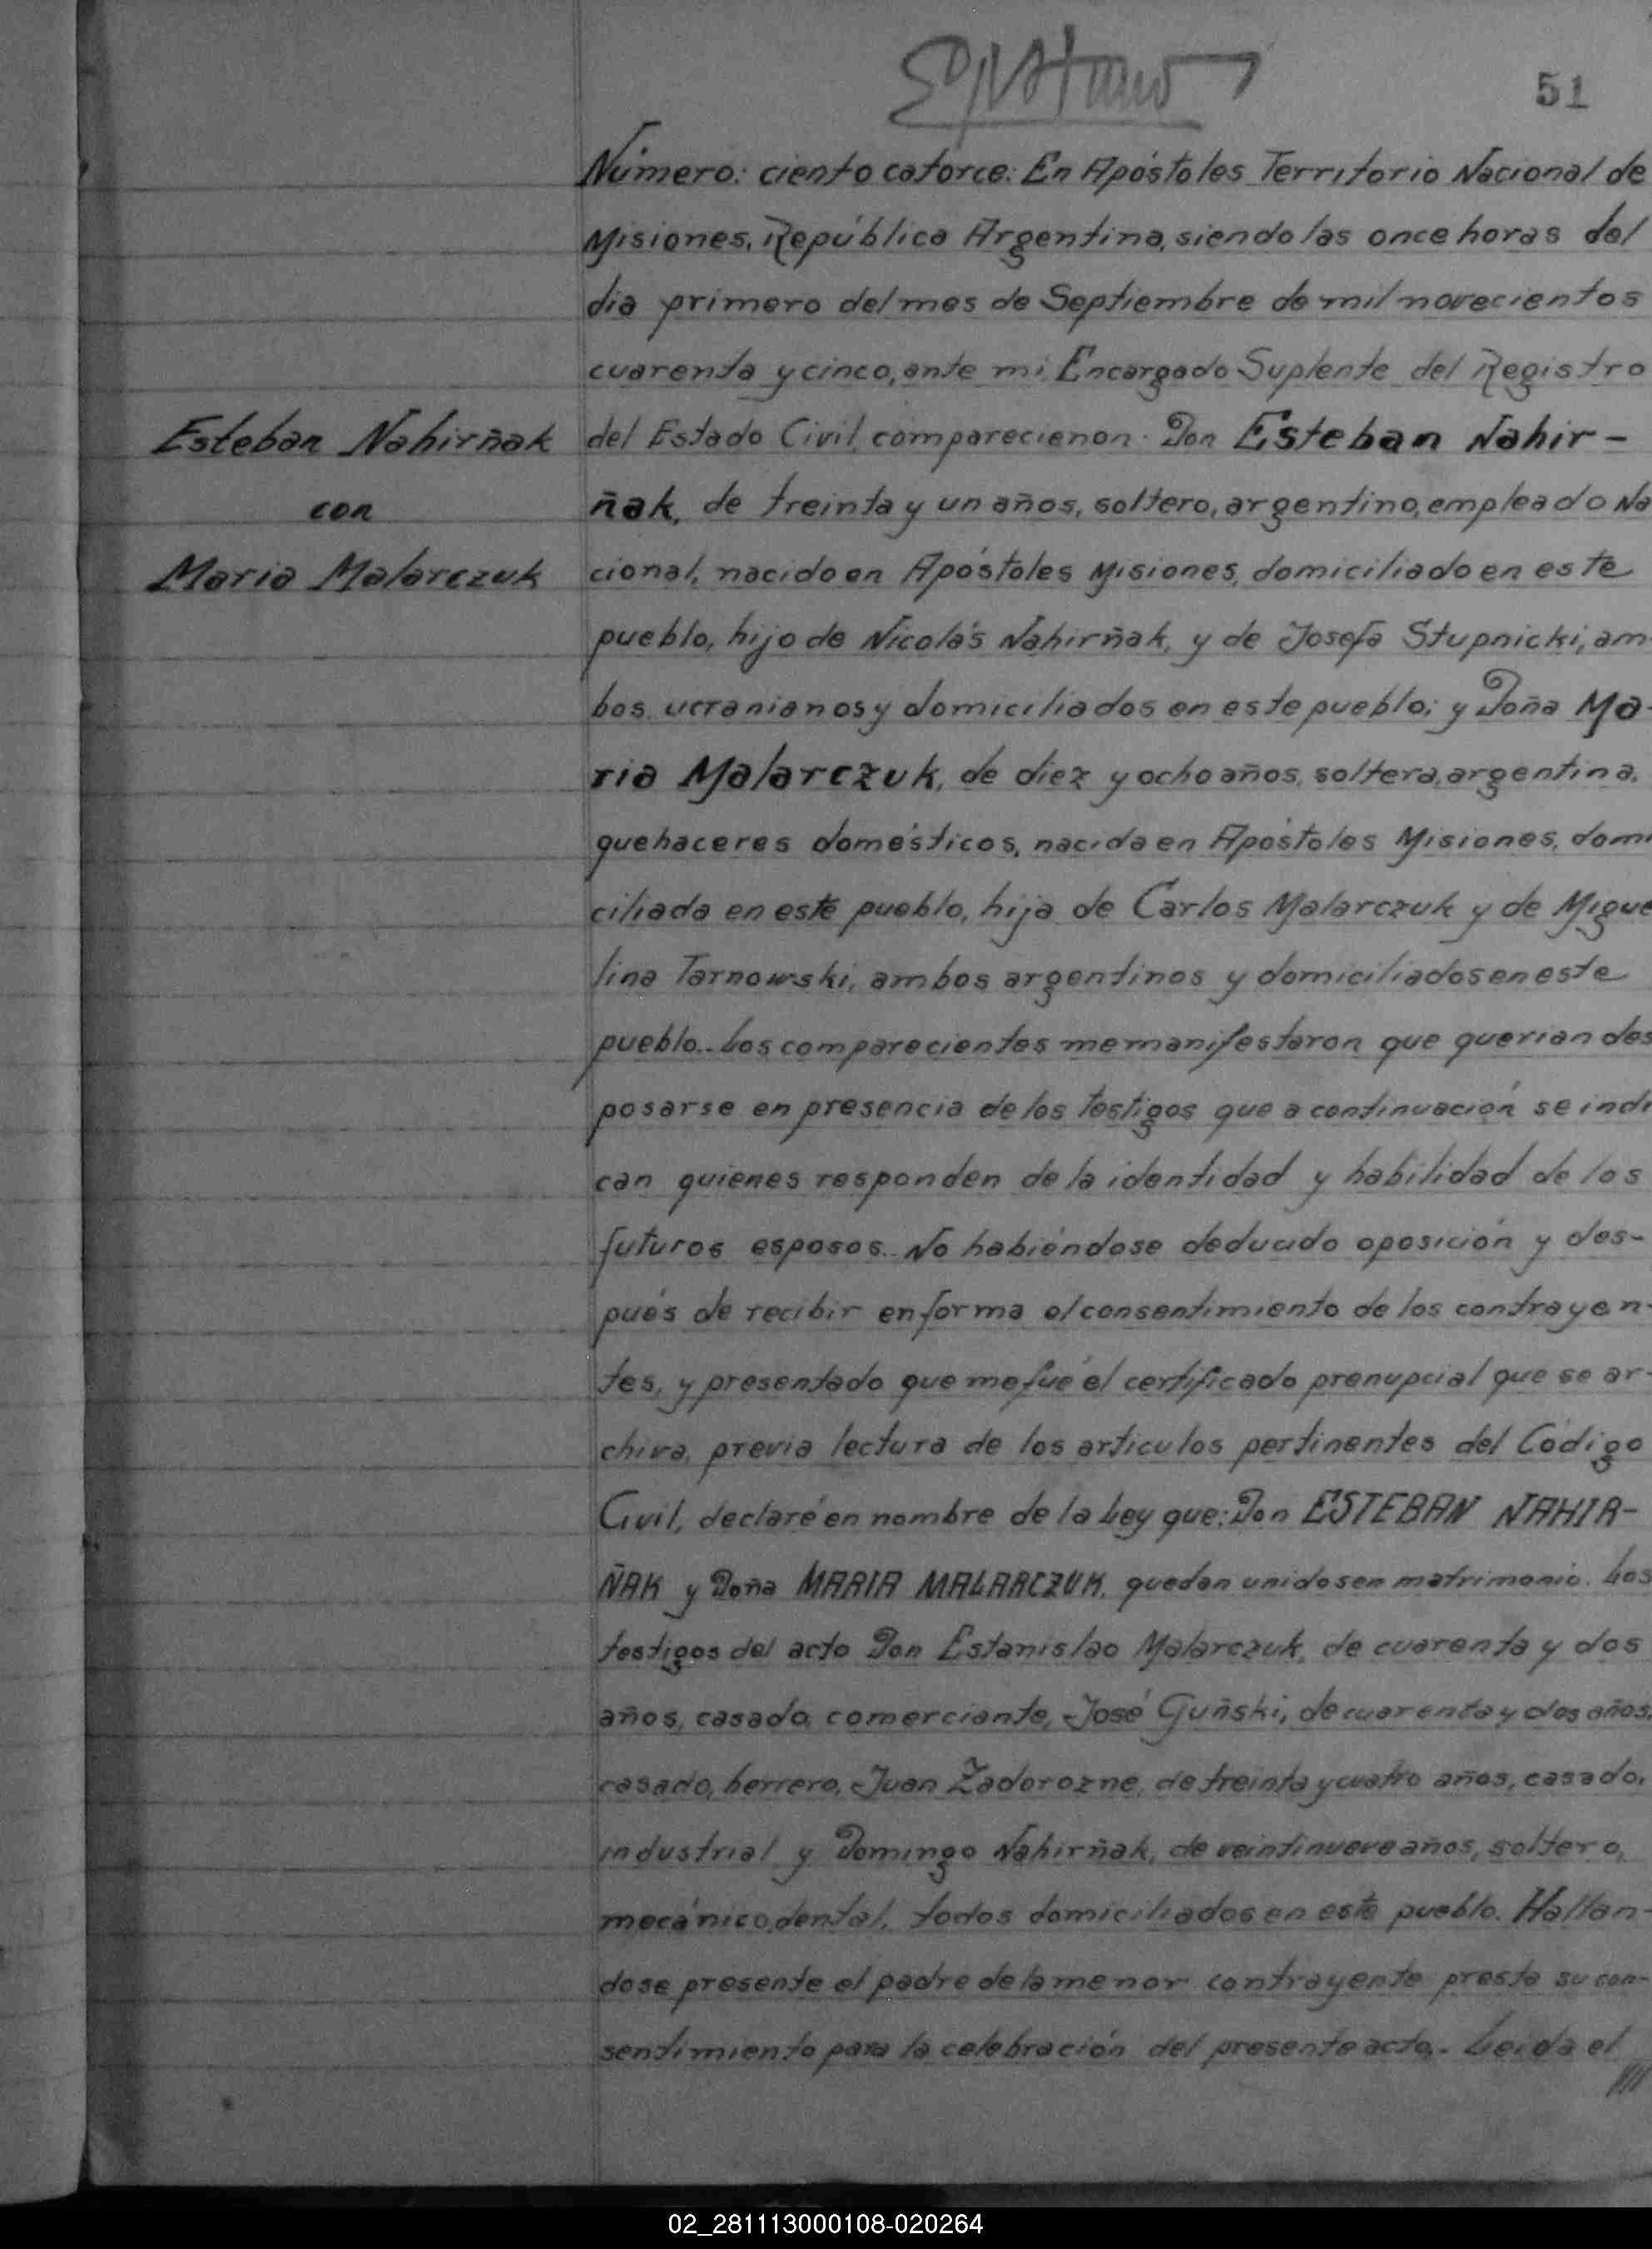 51
Número: ciento catorce: En Apóstoles Territorio Nacional de
Misiones, República Argentina, siendo las once horas del
dia primero del mes de Septiembre de mil novecientos
cuarenta y cinco, ante mi Encargado Suplente del Registro
Esteban Nahirñak
con
Maria Malarczuk
del Estado Civil, comparecienon: Don Esteban Nahir-
ñak, de treinta y un años, soltero, argentino, empleado Na
cional, nacido en Apóstoles Misiones, domiciliado en este
pueblo, hijo de Nicolás Nahirñak, y de Josefa Stupnicki, am-
bos ucranianos y domiciliados en este pueblo; y Doña Ma-
ria Malarczuk, de diez y ocho años, soltera, argentina,
quehaceres domésticos, nacida en Apóstoles Misiones, domi
ciliada en este pueblo, hija de Carlos Malarczuk y de Migue
lina Tarnowski, ambos argentinos y domiciliados en este
pueblo.. Los comparecientes me manifestaron que querian des
posarse en presencia de los testigos que a continuación se indi
can quienes responden de la identidad y habilidad de los
futuros esposos.. No habiéndose deducido oposición y des-
pués de recibir en forma el consentimiento de los contrayen-
tes, y presentado que me fué el certificado prenupcial que se ar-
chiva, previa lectura de los articulos pertinentes del Código
Civil, declaré en nombre de la Ley que: Don ESTEBAN NAHIR-
ÑAK y Doña MARIA MALARCZUK, quedan unidos en matrimonio. Los
testigos del acto Don Estanislao Malarczuk, de cuarenta y dos
años, casado, comerciante, José Guñski, de cuarenta y dos años,
casado, herrero, Juan Zadorozne, de treinta y cuatro años, casado,
industrial y Domingo Nahirñak, de veintinueve años, soltero,
mecánico dental, todos domiciliados en este pueblo. Hallan-
dose presente el padre de la menor contrayente presta su con-
sentimiento para la celebración del presente acto.- Leida el
///
02_281113000108-020264